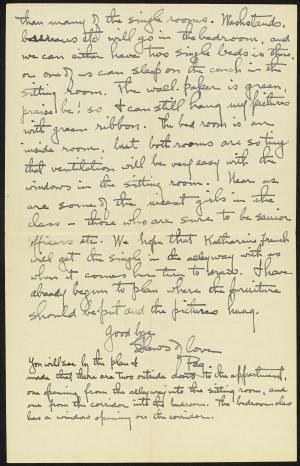 than many of the single rooms. Washstands,
bureaus etc will go in the bedroom, and
we can either have two single beds in there,
or one of us can sleep on the couch in the
sitting room. The wall-paper is green,
praise be! so I can still hang my pictures
with green ribbon. The bed room is an
inside room, but both rooms are so tiny
that ventilation will be very easy with the
windows in the sitting room. Near us
are some of the nicest girls in the
class - those who are sure to be senior
officers etc. We hope that Katharine French
will get the single in the alleyway with us
when it comes her turn to draw. I have
already begun to plan where the furniture
should be put and the pictures hung.
Good bye
Slews of love
Peg.
You will see by the plan I
made that there are two outside doors to the appartment,
one opening from the alleyway into the sitting room, and
one from the corridor into the bedroom. The bedroom also
has a window opening on the corridor.